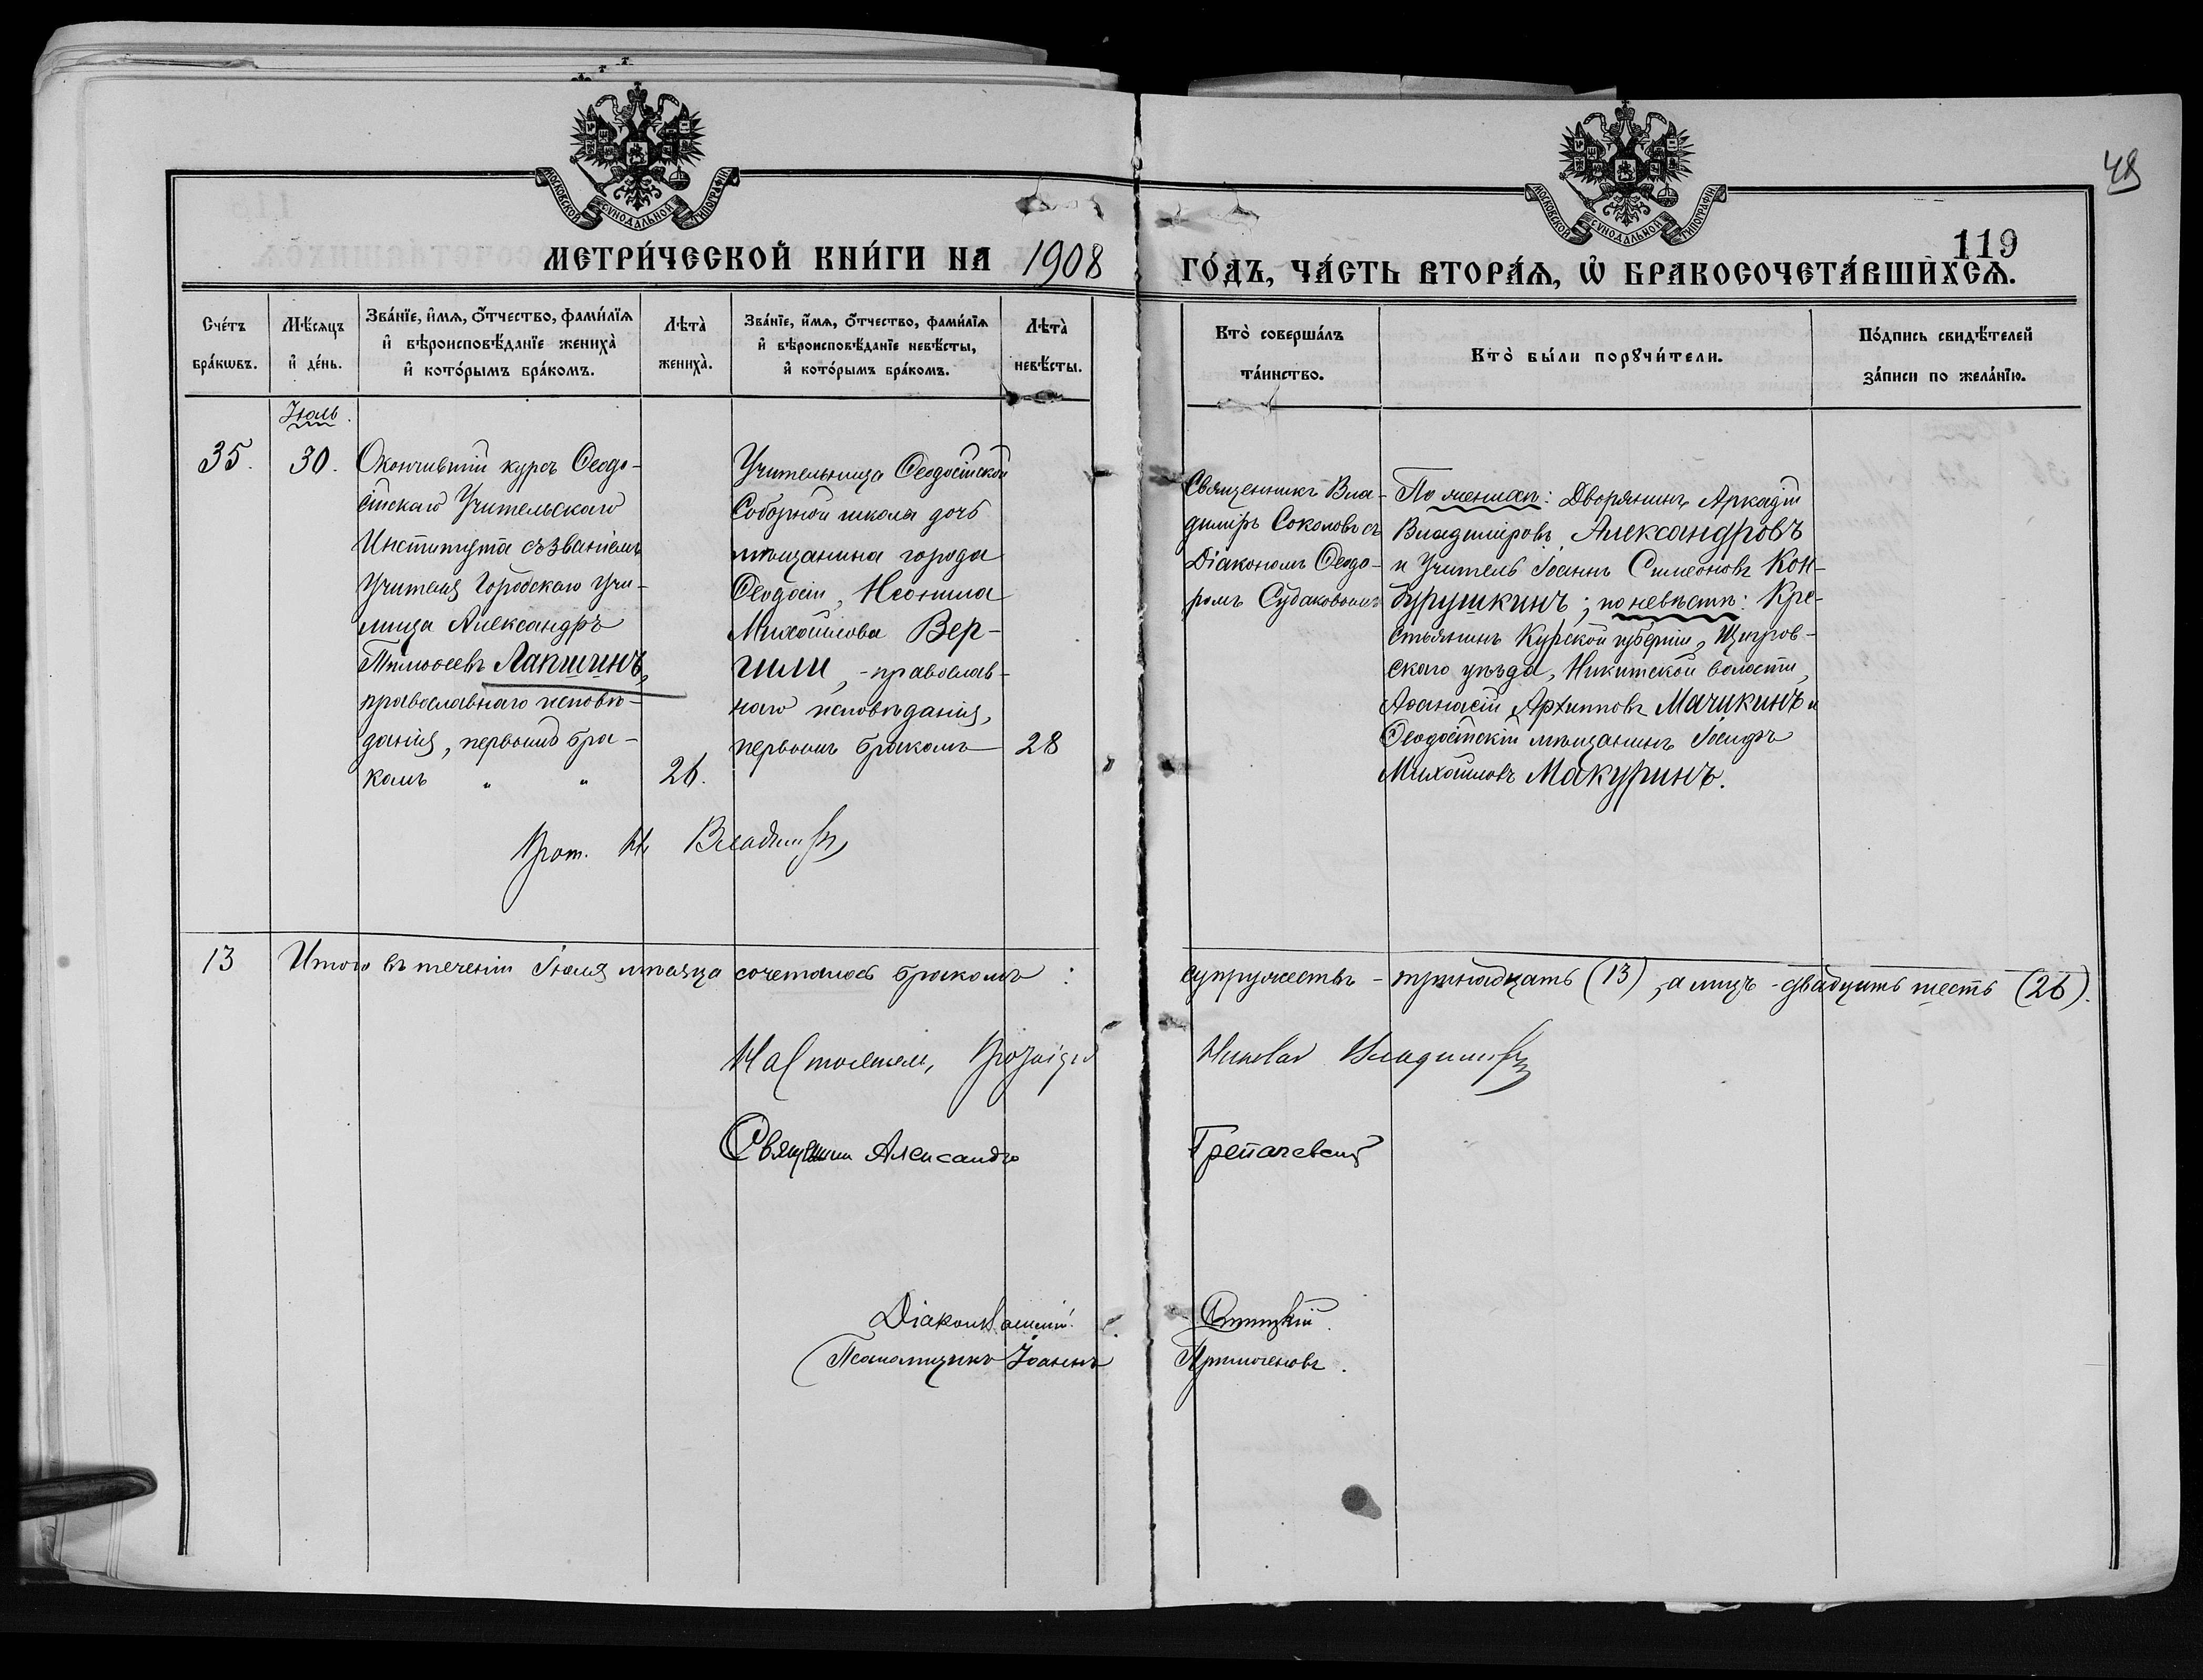 48
119
МОСКОВСКОЙ СѴНОДАЛЬНОЙ ТИПОГРАФІИ
МОСКОВСКОЙ СѴНОДАЛЬНОЙ ТИПОГРАФІИ
МЕТРИ́ЧЕСКОЙ КНИ́ГИ НА 1908
ГО́ДЪ, ЧА́СТЬ ВТОРА́Ѧ, Ѡ БРАКОСОЧЕТА́ВШИХСѦ.
Сче́тъ
бра́кѡвъ.
Мѣ́сяцъ
и де́нь.
Зва́нїе, и́мѧ, ѻ́тчество, фами́лїѧ
и вѣроисповѣ́данїе жениха̀
и кото́рымъ бра́комъ.
Лѣта̀
жениха̀.
Зва́нїе, и́мѧ, ѻ́тчество, фами́лїѧ
и вѣроисповѣ́данїе невѣ́сты,
и кото́рымъ бра́комъ.
Лѣта̀
невѣ́сты.
Кто̀ соверша́лъ
та́инство.
Кто̀ бы́ли порꙋчи́тели.
По́дпись свидѣ́телей
за́писи по жела́нїю.
Іюль.
35.
30.
Окончившій курсъ Ѳеодо-
сійскаго Учительскаго
Института съ званіемъ
Учителя Городскаго Учи-
лища Александръ
Тимоѳеевъ Лапшинъ,
православнаго исповѣ-
данія, первымъ бра-
комъ " "
26.
Учительница Ѳеодосійской
Соборной школы дочь
мѣщанина города
Ѳеодосіи, Неонила
Михайлова Вер-
гили, - православ-
наго исповѣданія,
первымъ бракомъ
28
Священникъ Вла-
диміръ Соколовъ съ
Діакономъ Ѳеодо-
ромъ Судаковымъ
По женихѣ: Дворянинъ Аркадій
Владиміровъ Александровъ
и Учитель Іоаннъ Симеоновъ Кон-
бурушкинъ; по невѣстѣ: Кре-
стьянинъ Курской губерніи, Щигров-
скаго уѣзда, Никитской волости,
Аѳанасій Архиповъ Мачикинъ и
Ѳеодосійскій мѣщанинъ Іосифъ
Михайловъ Макуринъ.
Прот. Н. Владимір
13 Итого въ теченіи Іюля мѣсяца сочеталось бракомъ: супружествъ - тринадцать (13), а лицъ - двадцать шесть (26).
Настоятель, Николай Владимір
Священник Александръ
Діаконъ
Псаломщикъ Іоаннъ